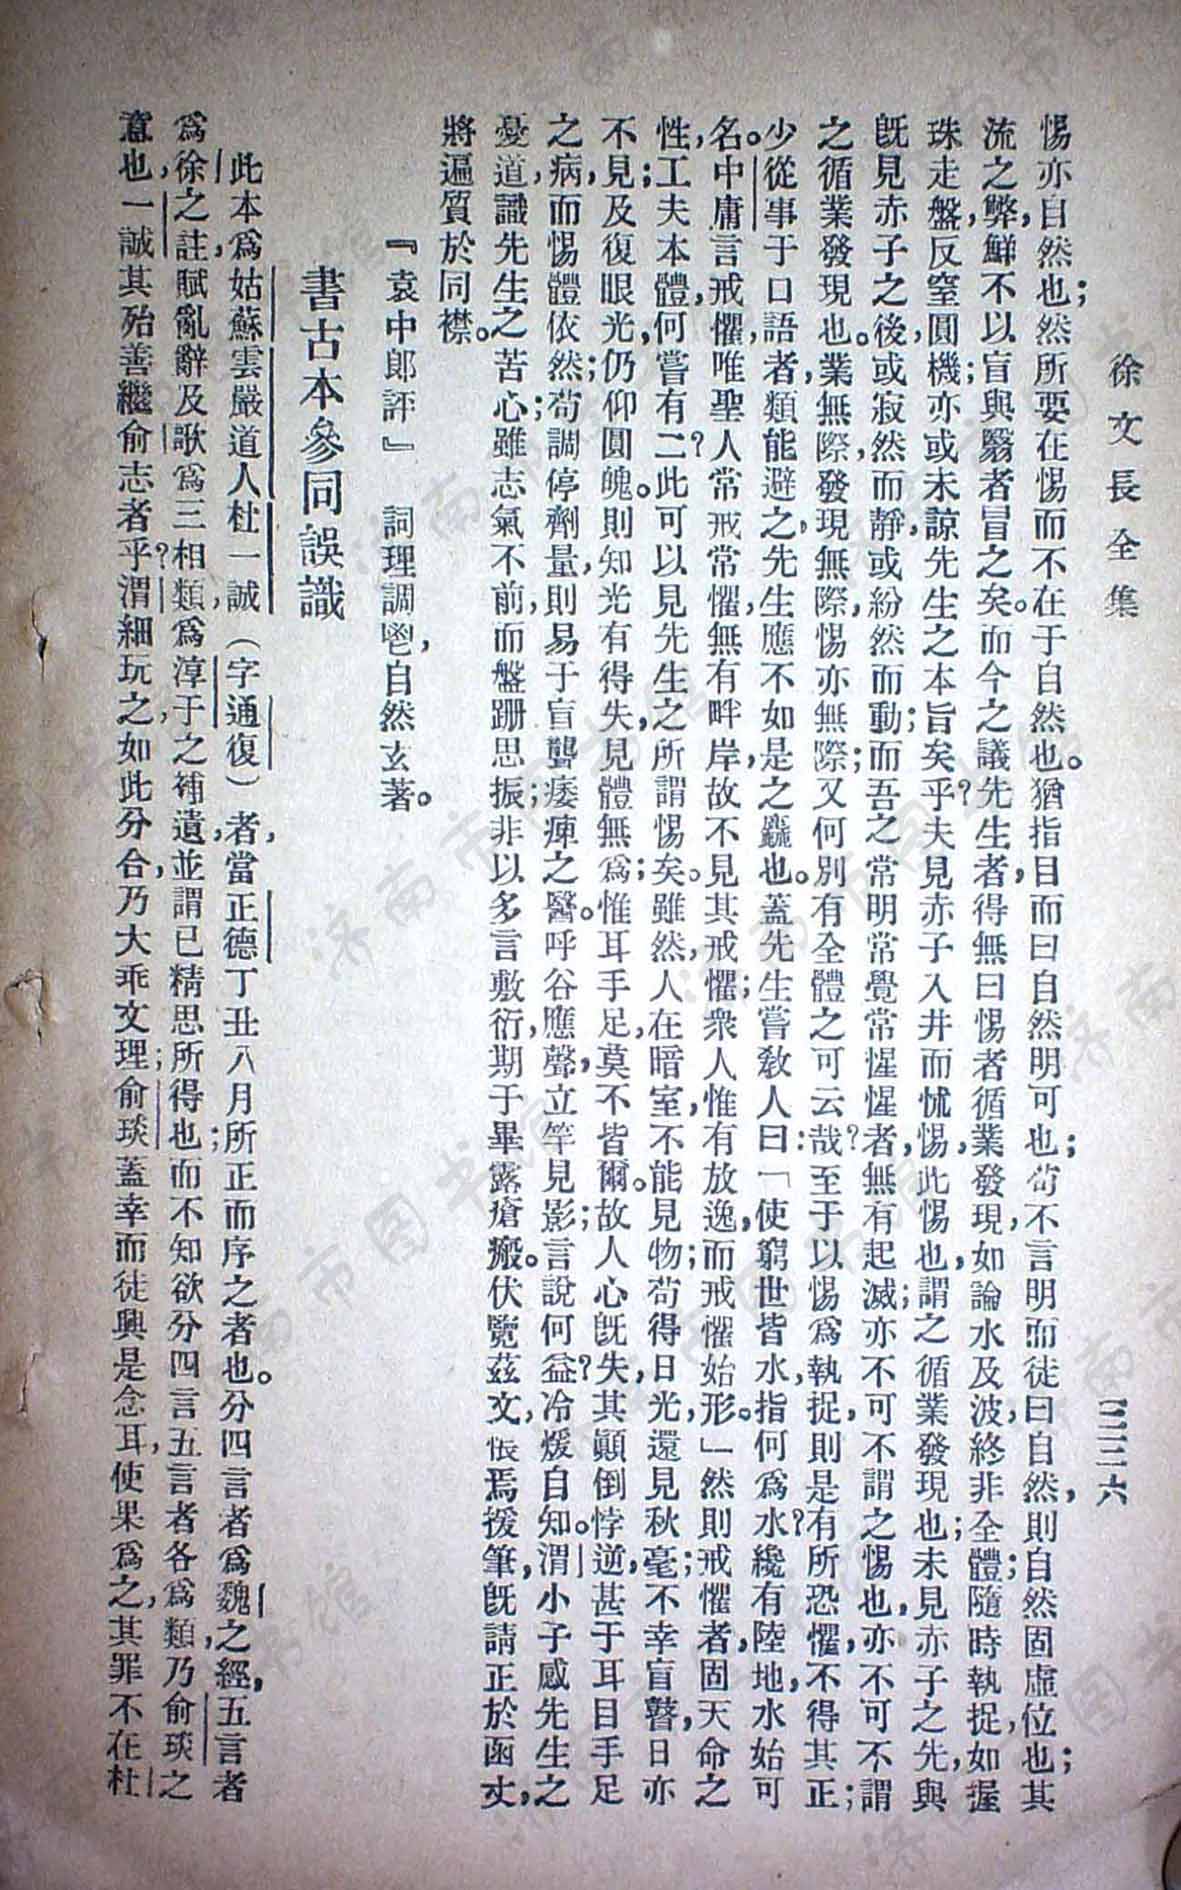 徐文長全集
三二六
惕亦自然也；然所要在惕而不在于自然也。猶指目而曰自然明可也；苟不言明而徒曰自然，則自然固虛位也；其
流之弊，鮮不以盲與翳者冒之矣。而今之議先生者，得無曰惕者循業發現，如論水及波，終非全體；隨時執捉，如握
珠走盤，反窒圓機；亦或未諒先生之本旨矣乎？夫見赤子入井而怵惕，此惕也，謂之循業發現也；未見赤子之先，與
旣見赤子之後，或寂然而靜，或紛然而動；而吾之常明常覺常惺惺者，無有起滅；亦不可不謂之惕也，亦不可不謂
之循業發現也。業無際，發現無際，惕亦無際；又何別有全體之可云哉？至于以惕爲執捉，則是有所恐懼，不得其正；
少從事于口語者，類能避之，先生應不如是之麤也。蓋先生嘗敎人曰：「使窮世皆水，指何爲水？纔有陸地，水始可
名。中庸言戒懼，唯聖人常戒常懼，無有畔岸，故不見其戒懼；衆人惟有放逸，而戒懼始形。」然則戒懼者，固天命之
性，工夫本體，何嘗有二？此可以見先生之所謂惕矣。雖然，人在暗室，不能見物；苟得日光，還見秋毫；不幸盲瞽，日亦
不見；及復眼光，仍仰圓魄。則知光有得失，見體無爲；惟耳手足，莫不皆爾。故人心旣失，其顚倒悖逆，甚于耳目手足
之病，而惕體依然；苟調停劑量，則易于盲聾痿痺之醫。呼谷應聲，立竿見影；言說何益？冷煖自知。渭小子感先生之
憂道，識先生之苦心，雖志氣不前，而盤跚思振；非以多言敷衍，期于畢露瘡瘢。伏覽茲文，悵焉援筆，旣請正於函丈，
將遍質於同襟。
『袁中郞評』　詞理調鬯，自然玄著。
書古本參同誤識
此本爲姑蘇雲嚴道人杜一誠（字通復）者，當正德丁丑八月所正而序之者也。分四言者爲魏之經，五言者
爲徐之註，賦亂辭及歌爲三相類，爲淳于之補遺，並謂已精思所得也；而不知欲分四言五言者各爲類，乃俞琰之
意也，一誠其殆善繼俞志者乎？渭細玩之，如此分合，乃大乖文理；俞琰蓋幸而徒興是念耳，使果爲之，其罪不在杜